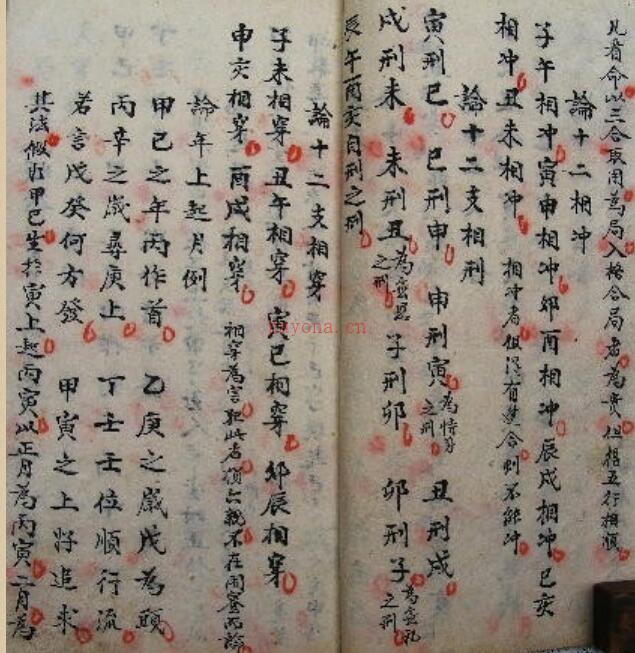 凡看命以三合取用為局入格合局者為貴但搭五行相順
論十二相冲
子午相冲寅申相冲卯酉相冲辰戌相冲巳亥
相冲丑未相冲 相冲者但得有合則不能冲
論十二支相刑
寅刑巳 巳刑申 申刑寅為恃势之刑 丑刑戌
戌刑未 未刑丑為之刑 子刑卯 卯刑子為無礼之刑
辰午酉亥自刑之刑
論十二支相穿
子未相穿 丑午相穿 寅巳相穿 卯辰相穿
申亥相穿 酉戌相穿 相穿為害犯此者損六親不在用
論年上起月例
甲己之年丙作首 乙庚之歲戊為頭
丙辛之歲尋庚上 丁壬壬位順行流
若言戊癸何方發 甲寅之上好追求
其法假如甲己生於寅上起丙寅以正月為丙寅二月為
nuyona.cn